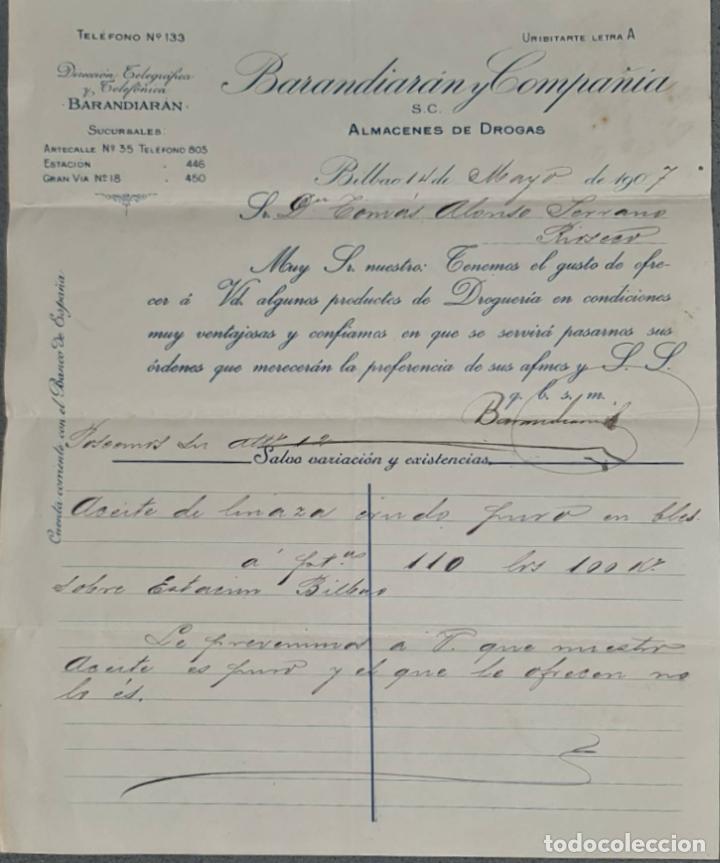 TELÉFONO Nº 133
URIBITARTE LETRA A
Dirección Telegráfica
y Telefónica
BARANDIARÁN
Barandiarán y Compañía
S.C.
ALMACENES DE DROGAS
SUCURSALES:
ARTECALLE Nº 35 TELÉFONO 805
ESTACIÓN . 446
GRAN VIA Nº 18 . 450
Bilbao 14 de Mayo de 1907
Sr. Dn Tomás Alonso Serrano
Rioseco
Muy Sr. nuestro: Tenemos el gusto de ofre-
cer á Vd. algunos productos de Droguería en condiciones
muy ventajosas y confiamos en que se servirá pasarnos sus
órdenes que merecerán la preferencia de sus afmos y S. S.
q. b. s. m.
Barandiarán
Poseemos su
Salvo variación y existencias.
Cuenta corriente con el Banco de España.
Aceite de linaza crudo puro en bles.
á ptas 110 los 100 Ks.
sobre Estacion Bilbao
Le prevenimos a V. que nuestro
Aceite es puro y el que le ofrecen no
lo és.
todocoleccion